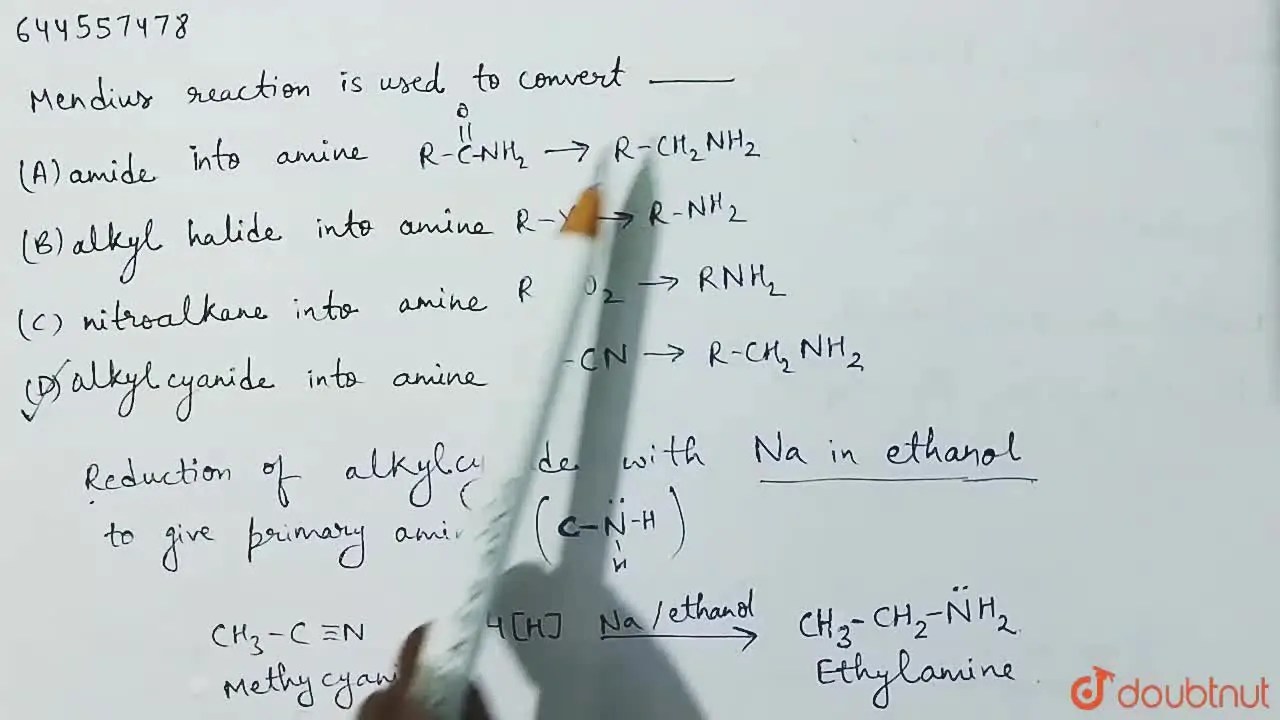 644557478
Mendius reaction is used to convert ____
(A) amide into amine R-C-NH2 → R-CH2NH2
O
(B) alkyl halide into amine R-X → R-NH2
(C) nitroalkane into amine R O2 → RNH2
(D) alkylcyanide into amine -CN → R-CH2NH2
Reduction of alkylcy de with Na in ethanol
to give primary ami (C-N̈-H)
H
CH3-C≡N 4[H] Na/ethanol → CH3-CH2-N̈H2
Methycyani Ethylamine
doubtnut